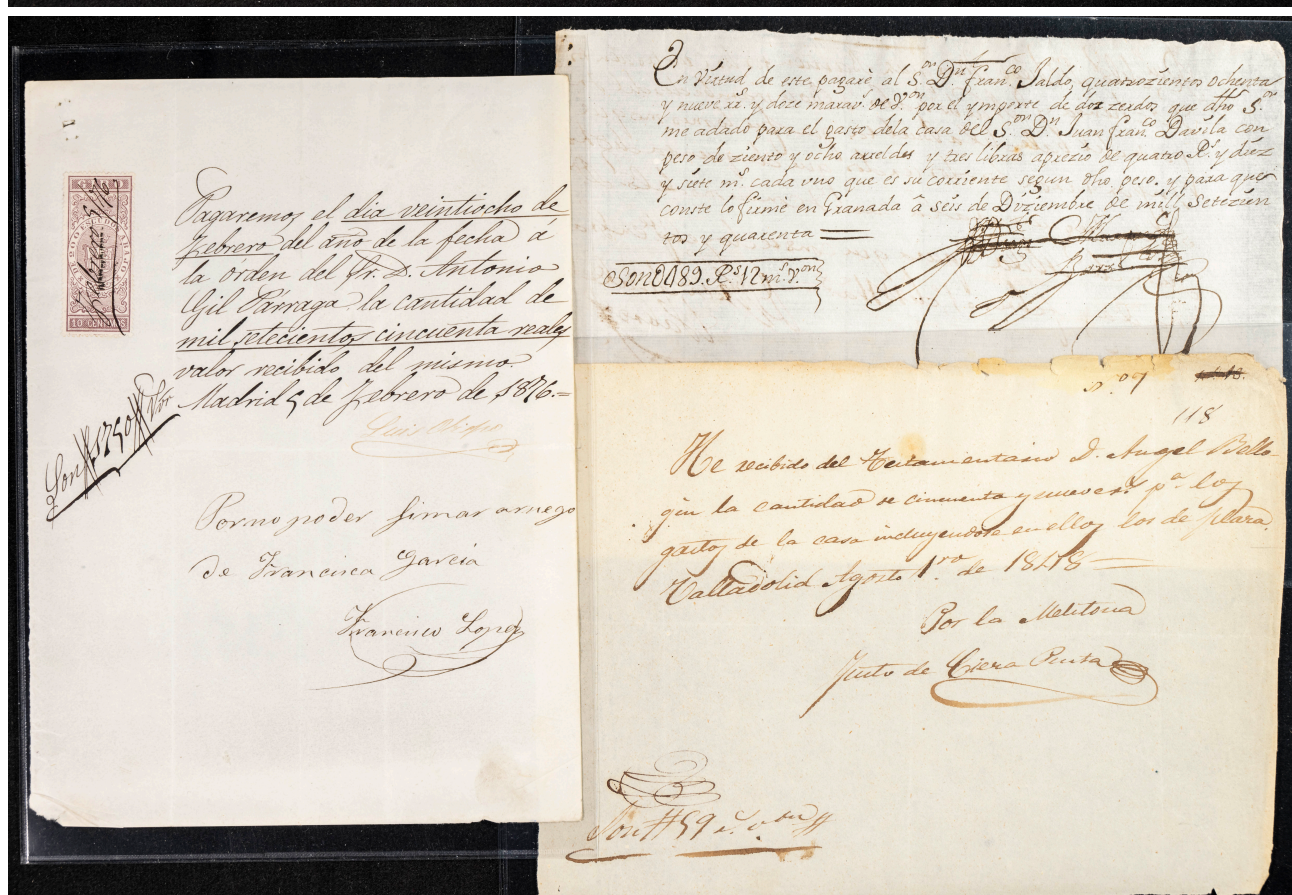 Pagaremos el dia veintiocho de
Febrero del año de la fecha á
la órden del Sr. D. Antonio
Gil Párraga la cantidad de
mil setecientos cincuenta reales
valor recibido del mismo.
Madrid 5 de Febrero de 1876.=
Luis
Son 1750 Rvon
10 CENT
Febrero 5/76
Por no poder fimar arruego
de Francisca Garcia
Francisco Lopez
En virtud de este pagarè al S.on Dn Fran.co Jaldo, quatrozientos ochenta
y nueve rr.s y doze marav.s de v.on por el ymporte de doz zerdos que dho S.or
me adado para el gasto dela casa del S.on Dn Juan Fran.co Davila con
peso de ziento y ocho arreldes y tres libras aprezio de quatro R.s y diez
y siete m.s cada vno que es su corriente segun dho peso. y para que
conste lo firmè en Granada â seis de Dziembre de mill Setezien
tos y quarenta =
Son 0489. R.s 12 m.s v.on
n.o 97
118
He recibido del Testamentario D. Angel Bello
gin la cantidad de cincuenta y nueve r.s p.a los
gastos de la casa incluyendose en ellos los de plaza.
Valladolid Agosto 1.ro de 1848=
Por la Melitona
Justo de
Son # 59 r.s